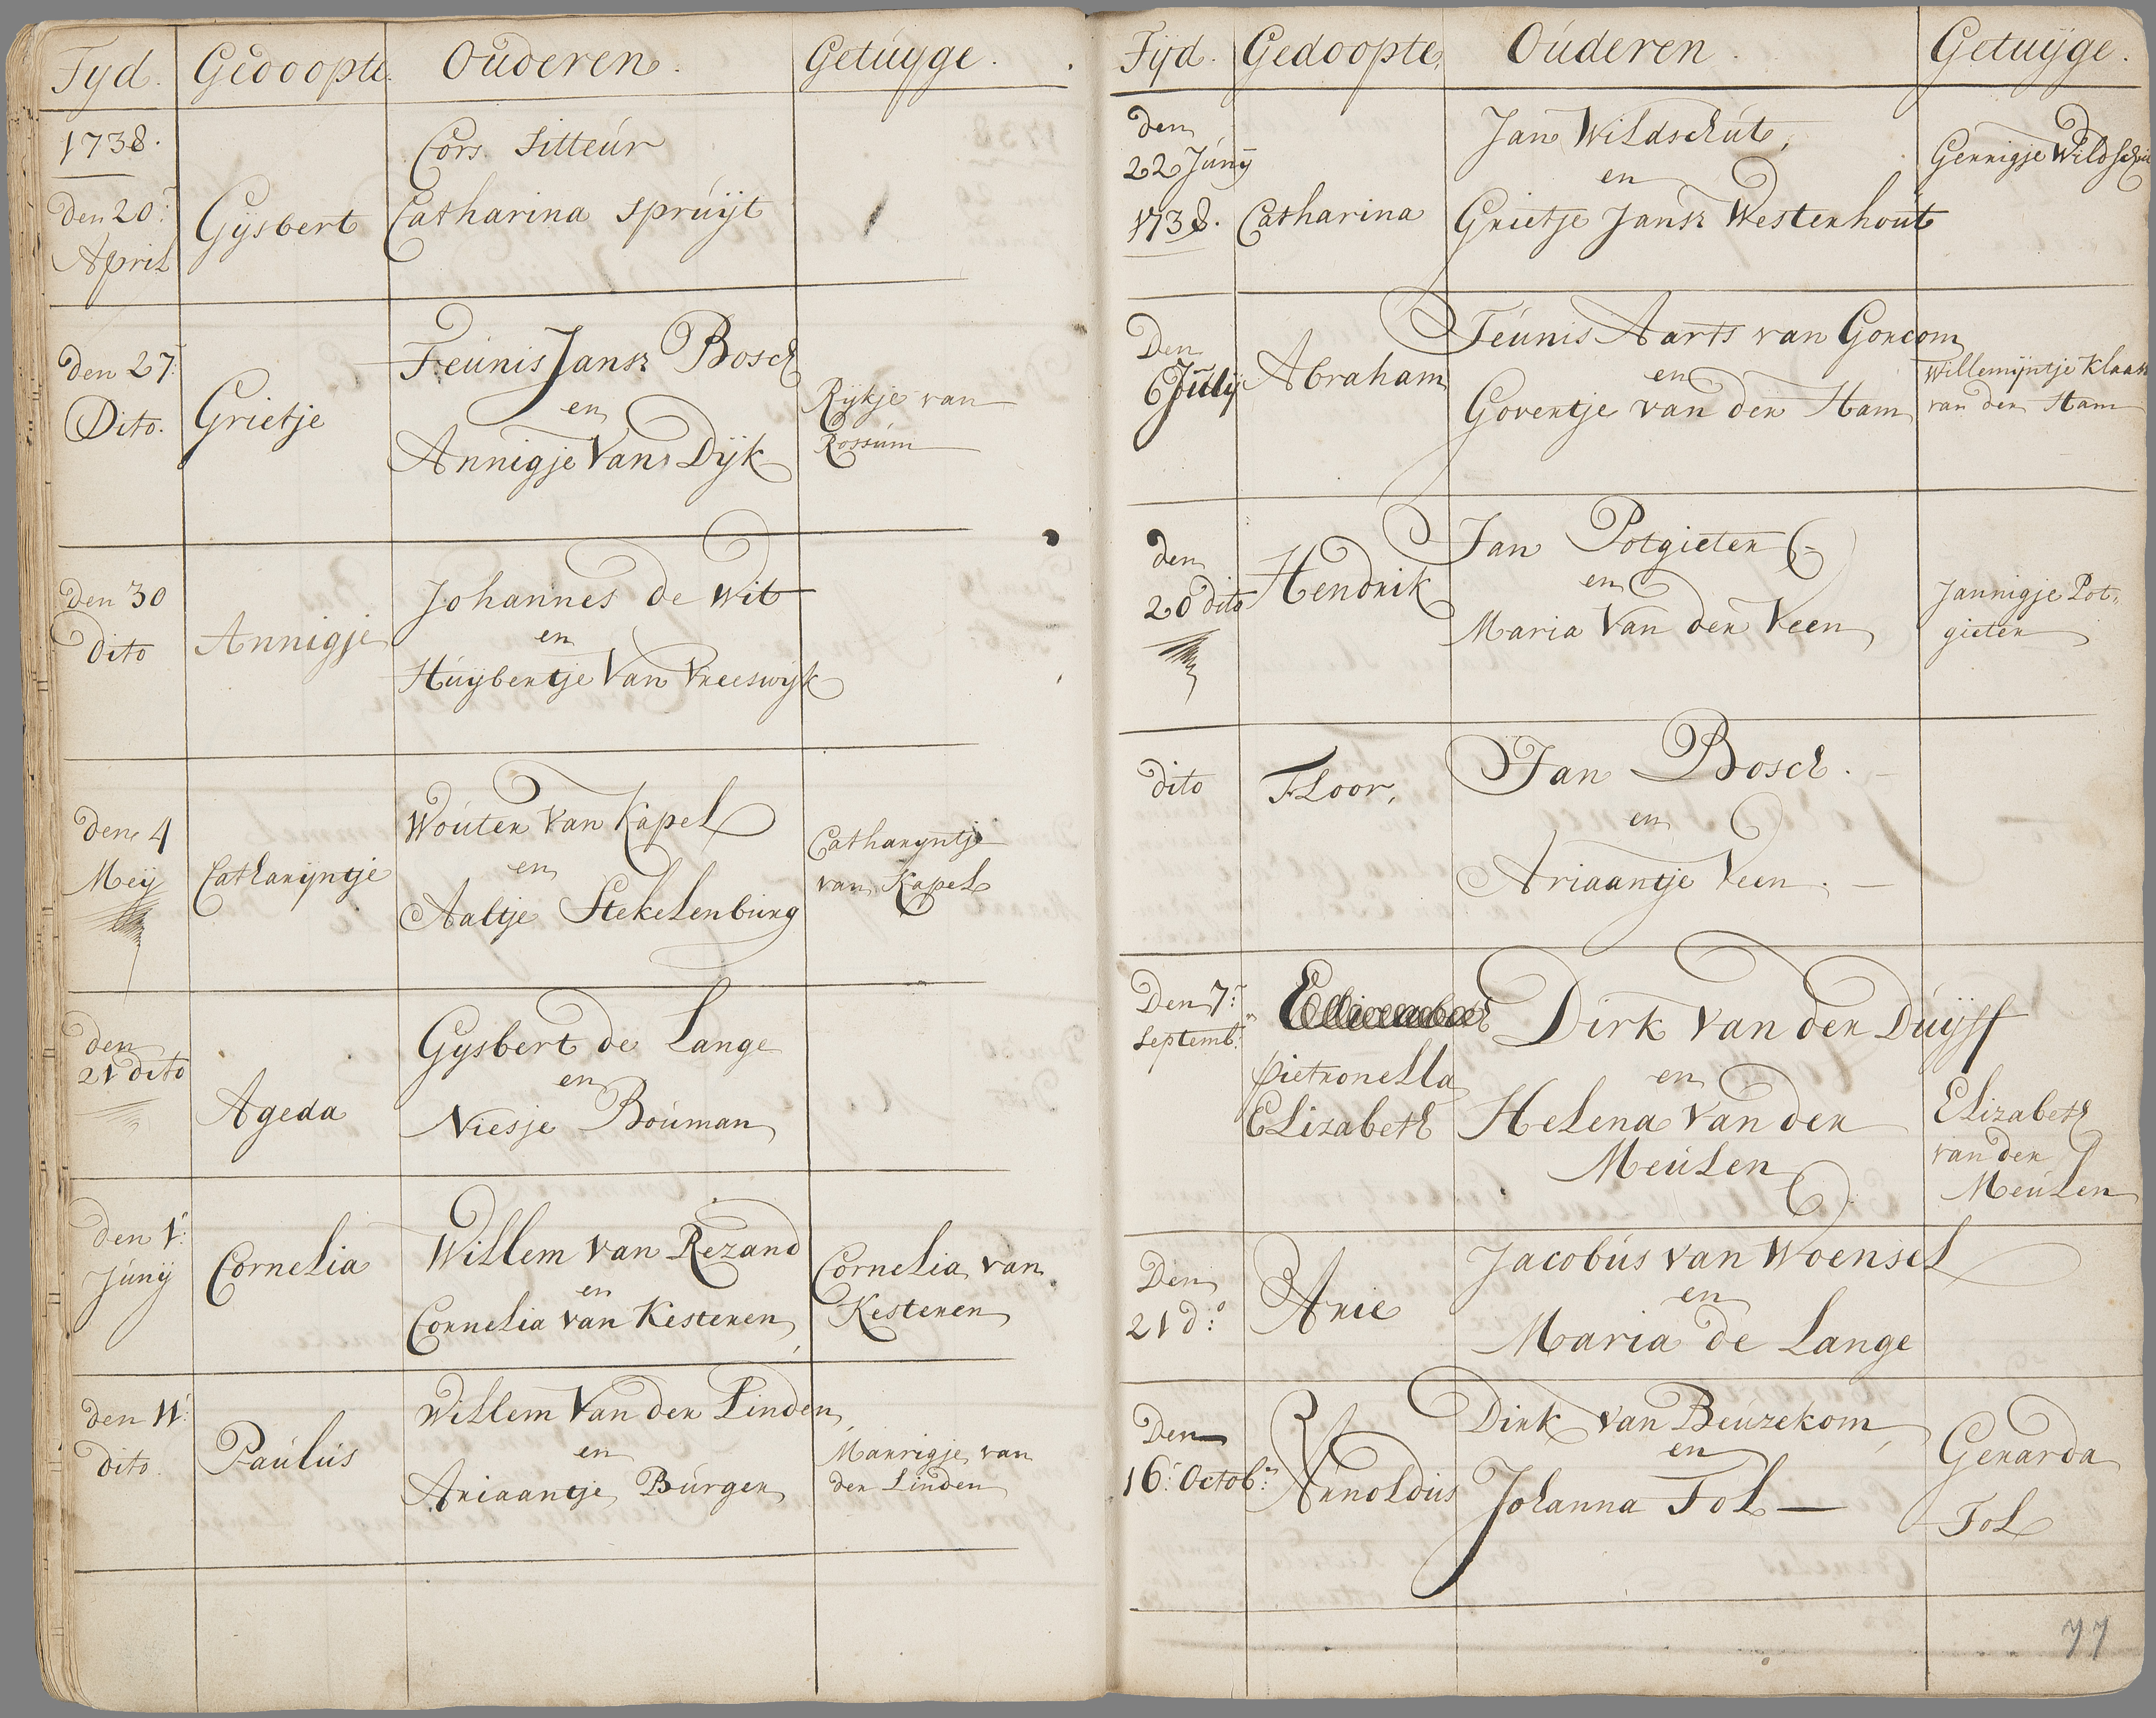 Tyd. Gedoopte. Ouderen. Getuyge.
1738.
Cors Sitteur
den 20:
April
Gysbert
Catharina Spruijt
den 27:
Dito.
Grietje
Teunis Jansz Bosch
en
Annigje Van Dijk
Rijkje van
Rossum
den 30
dito
Annigje
Johannes de Wit
en
Huijbertje Van Vreeswijk
den 4
Meij
Catharijntje
Wouter Van Kapel
en
Aaltje Stekelenburg
Catharijntje
van Kapel
den
21 dito
Ageda
Gysbert de Lange
en
Niesje Bouman
den 1:
Junij
Cornelia
Willem van Rezand
en
Cornelia van Kesteren
Cornelia van
Kesteren
den 11:
dito.
Paulus
Willem Van der Linden
en
Ariaantje Burger
Marrigje van
der Linden
Tijd. Gedoopte. Ouderen. Getuijge.
den
22 Junij
1738.
Catharina
Jan Wildschut,
en
Grietje Jansz Westerhout
Gerrigje Wildschut
Den
6 Julij
Abraham
Teunis Aarts van Gorcom
en
Govertje van der Ham
Willemijntje Klaasz
van der Ham
den
20 dito
Hendrik
Jan Potgieter
en
Maria Van der Veen
Jannigje Pot,
gieter
dito
Floor,
Jan Bosch.
en
Ariaantje Veen.
Den 7:
Septembr:
Pietronella
Elizabeth
Dirk Van der Duijff
en
Helena Van der
Meulen
Elizabeth
van der
Meulen
Den
21 do:
Arie
Jacobus van Woensel
en
Maria de Lange
Den
16: Octobr:
Arnoldus
Dirk van Beuzekom
en
Johanna Tol
Gerarda
Tol
77